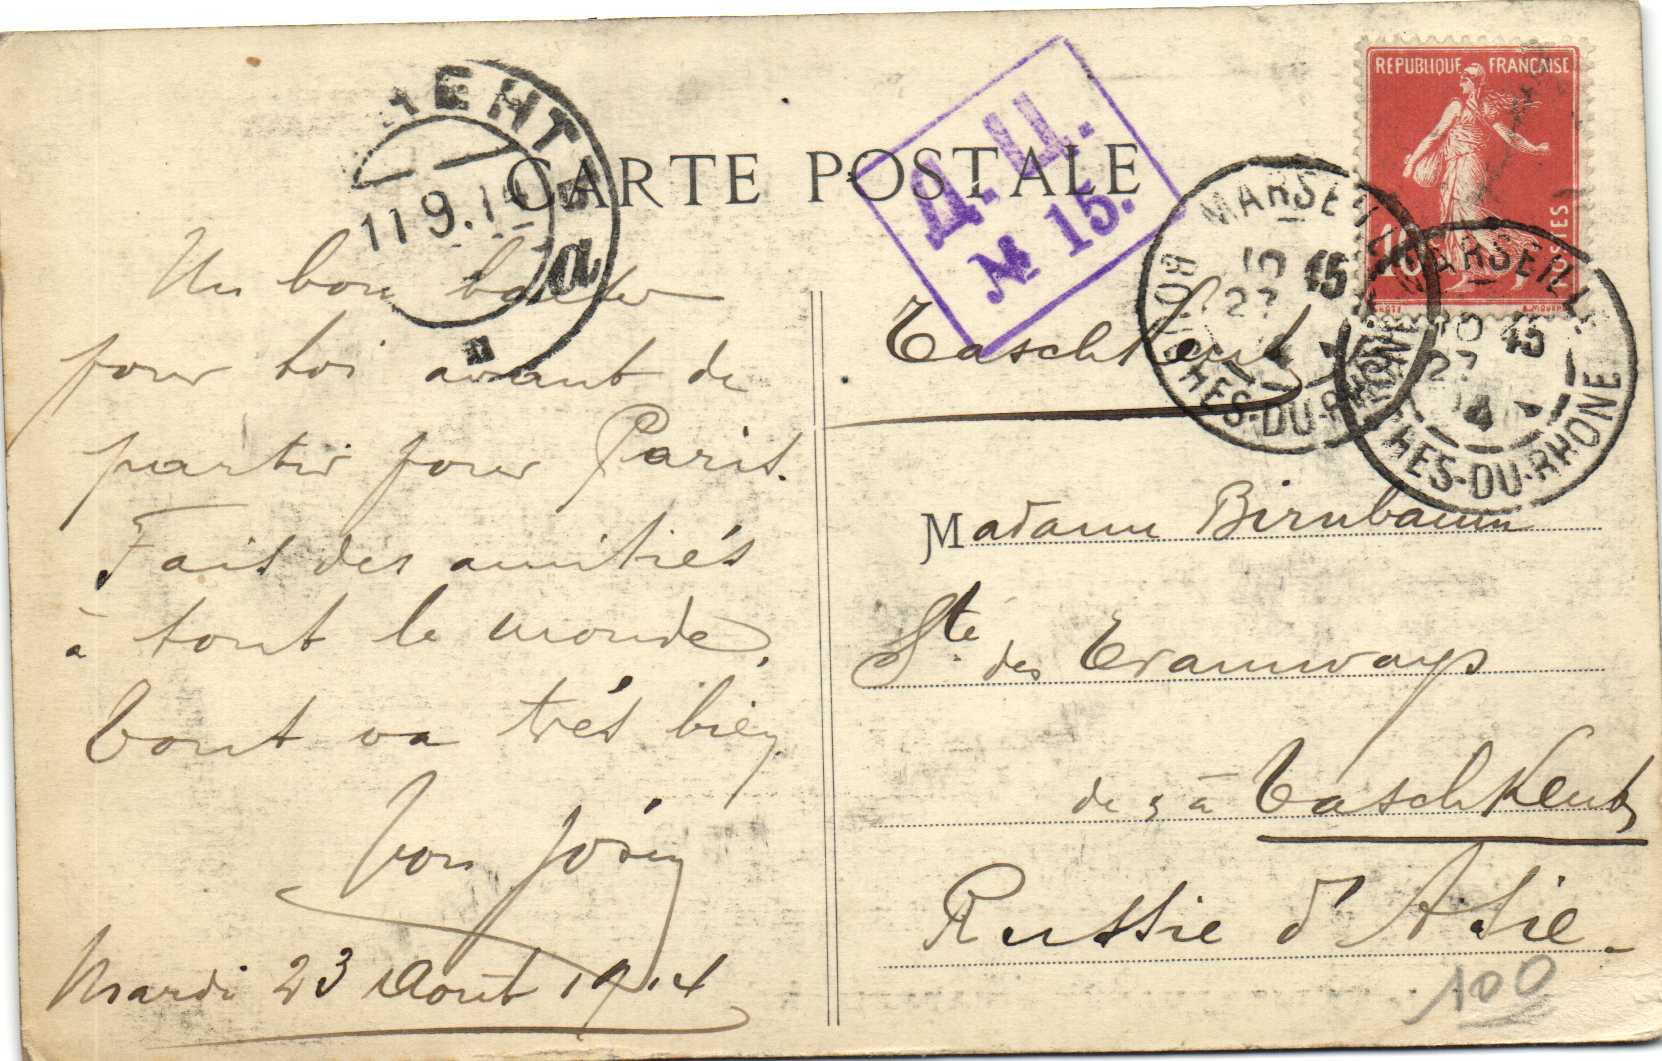 CARTE POSTALE
REPUBLIQUE FRANÇAISE
POSTES
Д. Ц.
№ 15.
MARSEILLE
10 45
27
BOUCHES-DU-RHONE
MARSEILLE
10 45
27
CHES-DU-RHONE
ЕНТЪ
11 9. 14
a
Un bon baiser
pour toi avant de
partir pour Paris.
Fait des amitiés
à tout le monde.
Tout va très bien
Ton
Mardi 23 Aout 1914
Taschkent
Madame Birnbaum
Sté. des Tramways
de à Taschkent
Russie d'Asie.
100